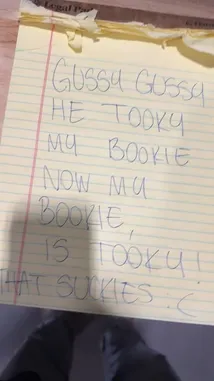 Legal Pad
GUSSY GUSSY
HE TOOKY
MY BOOKIE
NOW MY
BOOKIE,
IS TOOKY!
THAT SUCKIES :(